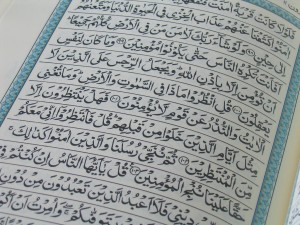 فَلَوْلَا كَانَتْ قَرْيَةٌ اٰمَنَتْ
اٰمَنُوْا كَشَفْنَا عَنْهُمْ عَذَابَ الْخِزْيِ فِي الْحَيٰوةِ الدُّنْيَا
اِلٰى حِيْنٍ وَلَوْ شَآءَ رَبُّكَ لَاٰمَنَ مَنْ فِي الْاَرْضِ كُلُّهُمْ
اَفَاَنْتَ تُكْرِهُ النَّاسَ حَتّٰى يَكُوْنُوْا مُؤْمِنِيْنَ وَمَا كَانَ لِنَفْسٍ
اَنْ تُؤْمِنَ اِلَّا بِاِذْنِ اللّٰهِ وَيَجْعَلُ الرِّجْسَ عَلَى الَّذِيْنَ لَا
يَعْقِلُوْنَ قُلِ انْظُرُوْا مَاذَا فِي السَّمٰوٰتِ وَالْاَرْضِ وَمَا تُغْنِي
الْاٰيٰتُ وَالنُّذُرُ عَنْ قَوْمٍ لَّا يُؤْمِنُوْنَ فَهَلْ يَنْتَظِرُوْنَ اِلَّا
مِثْلَ اَيَّامِ الَّذِيْنَ خَلَوْا مِنْ قَبْلِهِمْ قُلْ فَانْتَظِرُوْا اِنِّيْ مَعَكُمْ
مِّنَ الْمُنْتَظِرِيْنَ ثُمَّ نُنَجِّيْ رُسُلَنَا وَالَّذِيْنَ اٰمَنُوْا كَذٰلِكَ
حَقًّا عَلَيْنَا نُنْجِ الْمُؤْمِنِيْنَ قُلْ يٰٓاَيُّهَا النَّاسُ اِنْ كُنْتُمْ
دِيْنِيْ فَلَا اَعْبُدُ الَّذِيْنَ تَعْبُدُوْنَ مِنْ دُوْنِ